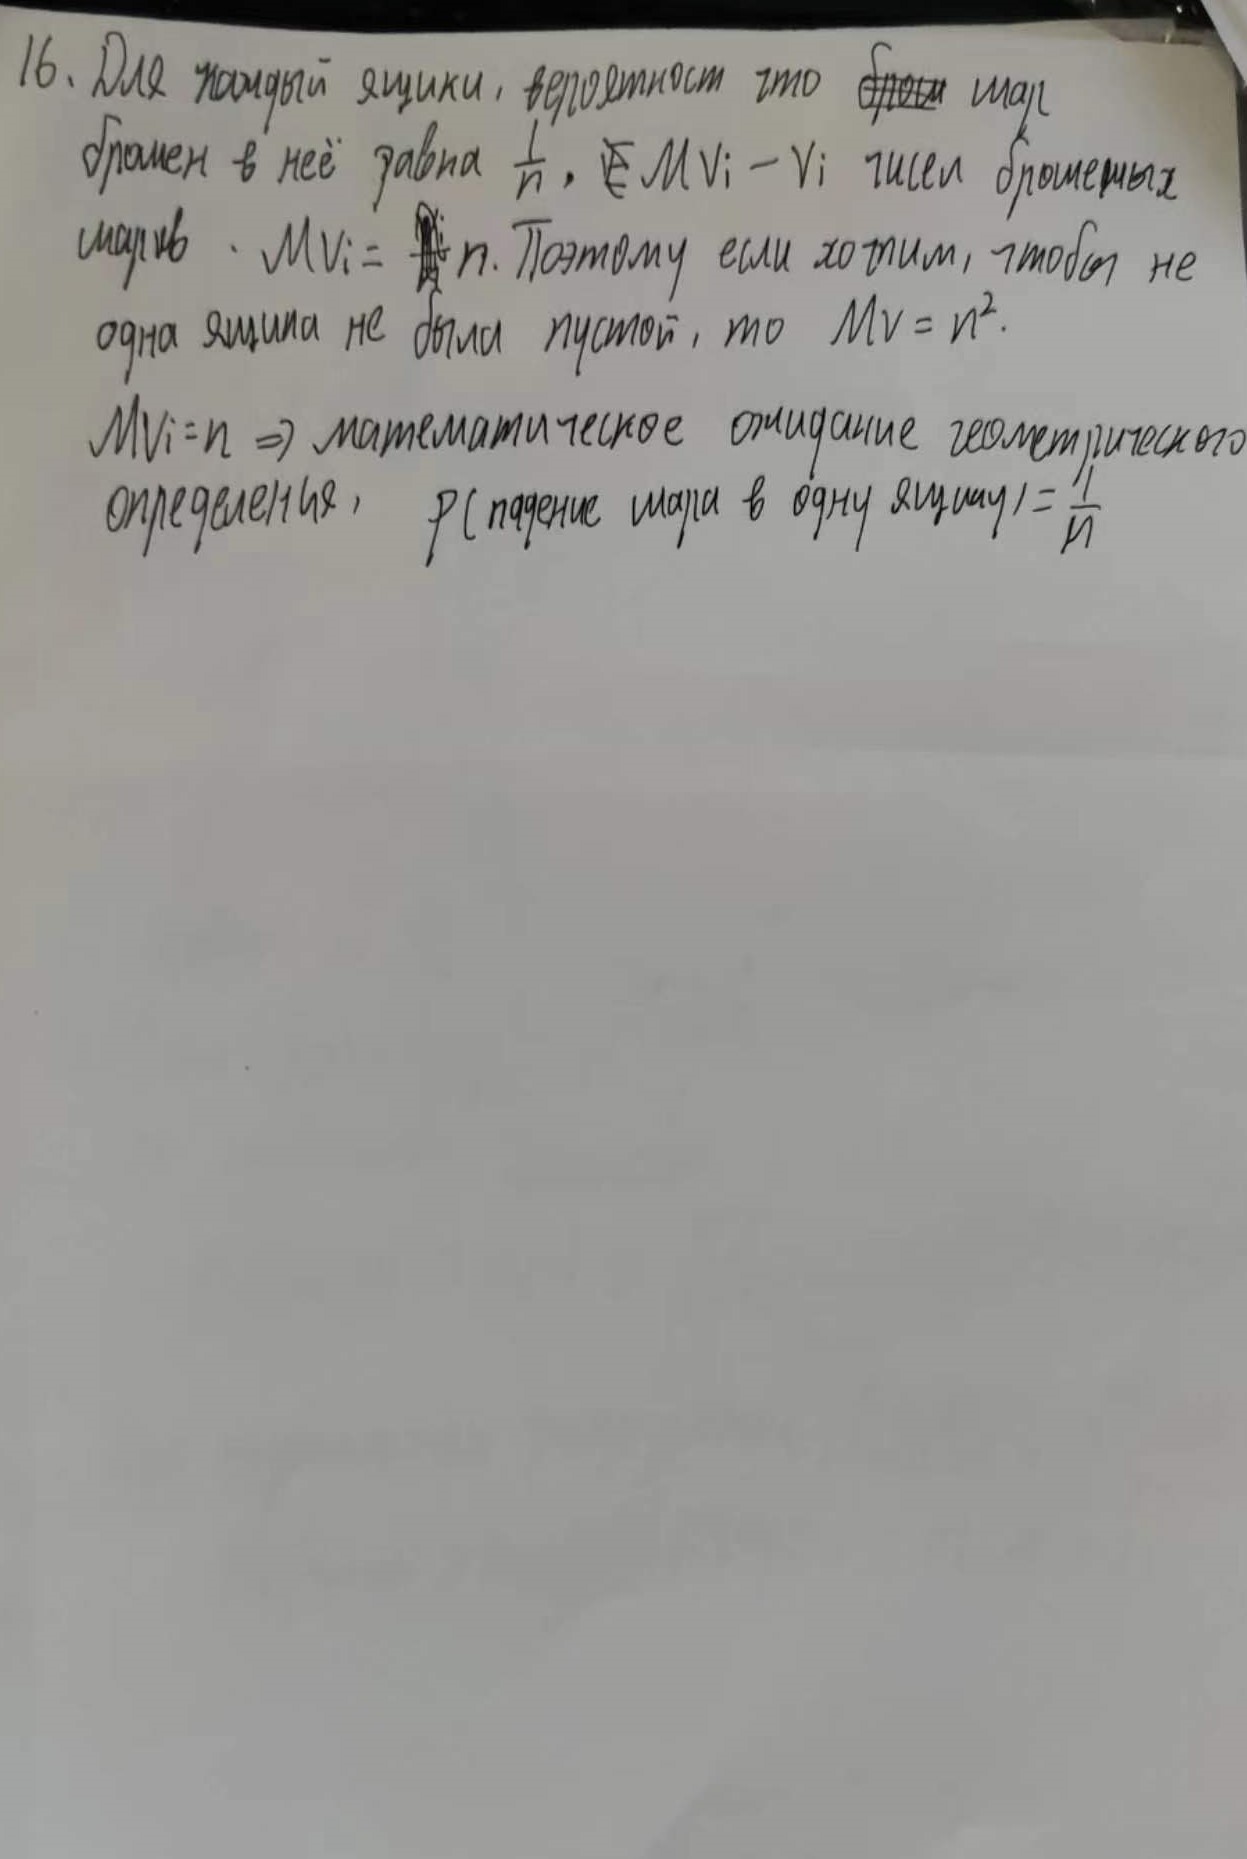 16. Для каждый ящики, вероятност что шар
брошен в неё равна 1/n. MVi - Vi чисел брошеных
шаров. MVi = n. Поэтому если хотим, чтобы не
одна ящика не была пустой, то MV = n².
MVi = n => математическое ожидание геометрического
определения, P(падение шара в одну ящику) = 1/n